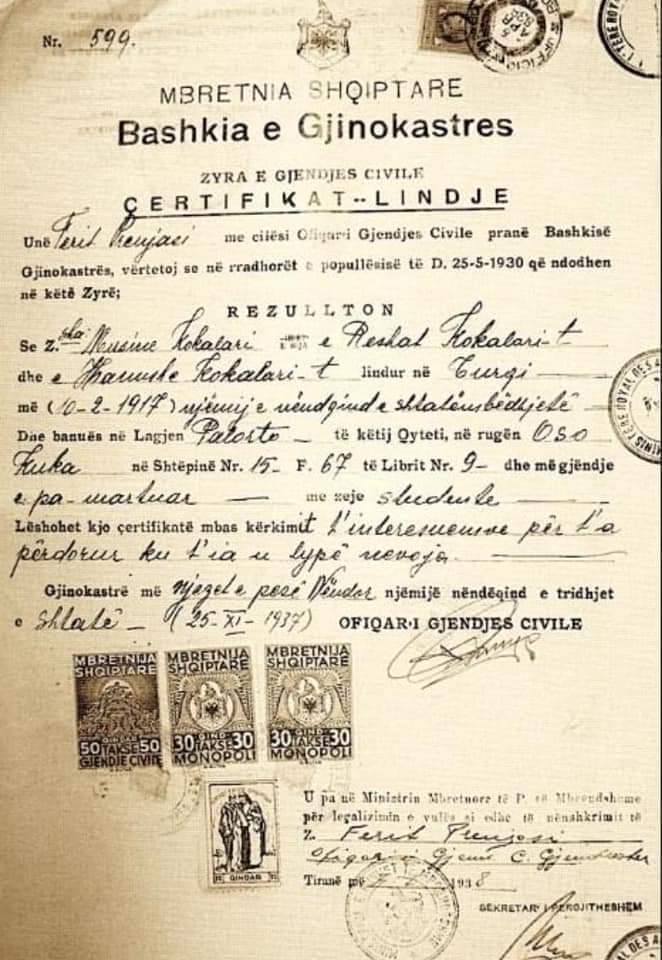 Nr. 599.
MBRETNIA SHQIPTARE
Bashkia e Gjinokastres
ZYRA E GJENDJES CIVILE
ÇERTIFIKAT-LINDJE
Unë Ferit Prenjasi me cilësi Ofiqari Gjendjes Civile pranë Bashkisë
Gjinokastrës, vërtetoj se në rradhorët e popullësisë të D. 25-5-1930 që ndodhen
në këtë Zyrë;
REZULLTON
Se Z.sha: Musine Kokalari e Reshat Kokalari-t
dhe e Hanushe Kokalari-t lindur në Turqi
më (10-2-1917) njëmijë e nëndqind e shtatëmbëdhjetë
Dhe banuës në Lagjen Palorto - të këtij Qyteti, në rugën Oso
Kuka në Shtëpinë Nr. 15- F. 67 të Librit Nr. 9- dhe mëgjëndje
e pa-martuar me zeje studente
Lëshohet kjo çertifikatë mbas kërkimit t'interesuemve për t'a
përdorur ku t'ia u lypë nevoja.
Gjinokastrë më njezet e pesë Nëndor njëmijë nëndëqind e tridhjet
e shtatë - (25-XI-1937) OFIQAR-I GJENDJES CIVILE
MBRETNIJA SHQIPTARE
50 QINDAR 50
TAKSE
GJENDJE CIVILE
MBRETNIJA SHQIPTARE
30 QIND. 30
TAKSE
MONOPOLI
MBRETNIJA SHQIPTARE
30 QIND. 30
TAKSE
MONOPOLI
QINDAR
U pa në Ministrin Mbretnore të P. të Mbrendshme
për legalizimin e vulës si edhe të nënshkrimit të
Z. Ferit Prenjasi
Ofiqari i Gjend. C. Gjinokaster
Tiranë më 1938
SEKRETAR I PERGJITHESHEM